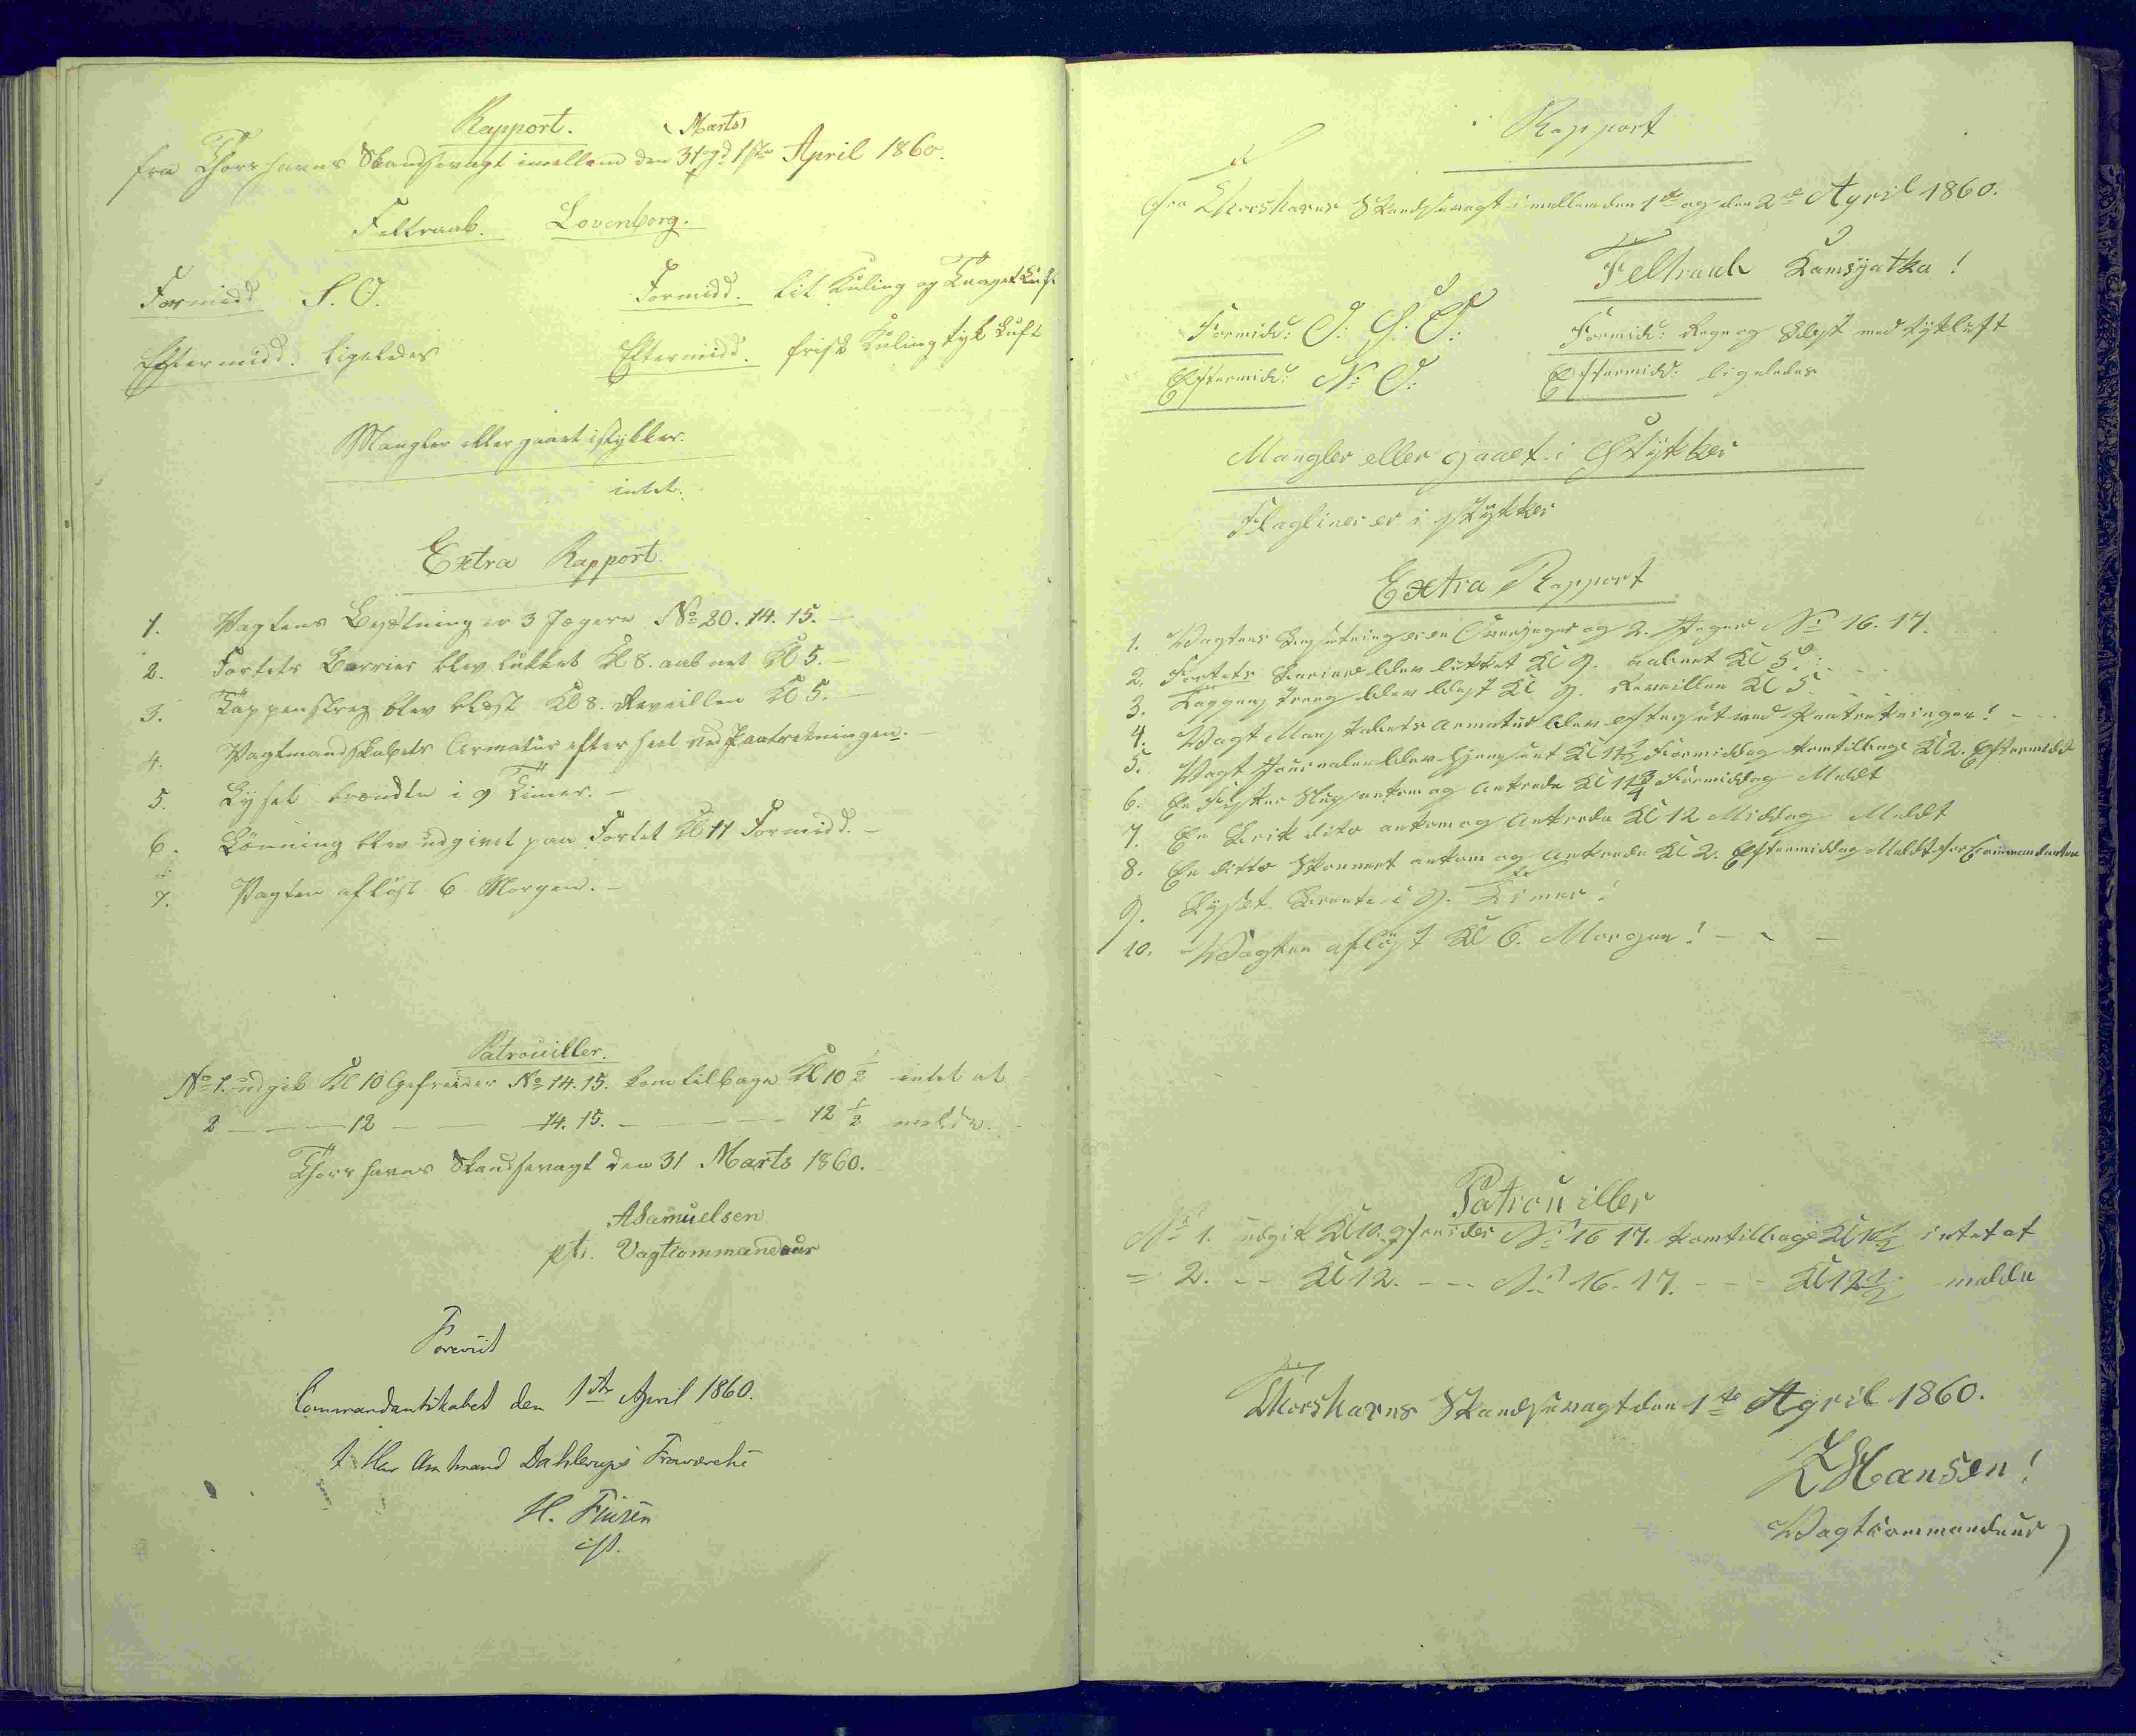 Rapport.
(Marts)
fra Thorshavns Skandsevagt imellem den 31 og d 1ste April 1860.
Feltraab. Lovenborg.
Formidd S. O.
Formidd. lit Kuling og Luft
Eftermidd. ligeledes
Eftermidd. frisk Kuling tyk Luft
Mangler eller gaaet i stykker.
intet.
Extra Rapport.
1. Vagtens Besætning er 3 Jægere No 20. 14. 15. –
2. Fortets Barrier blev lukket Kl 8. aabnet Kl 5. –
3. Tappenstreg blev blæst Kl 8. Reveillen Kl 5. –
4. Vagtmandskabets Armatur efterseet ved Paatrædningen. –
5. Lyset brændte i 9 Timer. –
6. Lönning blev udgivet paa Fortet Kl 11 Formidd. –
7. Vagten aflöst 6 Morgen. –
Patrouiller.
No 1. udgik Kl 10 Gefreider No 14. 15. kom tilbage Kl 10 1/2 intet at
2 – – – 12 – – 14. 15. – – – – 12 1/2 melde.
Thorshavns Skandsevagt den 31 Marts 1860.
ASamuelsen
pt. Vagtcommandeur
Forevist
Commandantskabet den 1ste April 1860.
I Herr Amtmand Dahlerups Fraværelse
H. Finsen
cst.
Rapport
fra Thorshavns Skandsevagt imellem den 1te og den 2den April 1860.
Feltraab Kamsyatka!
Formidd: O. S. O.
Formidd: Regn og Blæst med tykluft
Eftermidd: N: O:
Eftermidd: ligeledes
Mangler eller gaaet i Stykker
Flagliner er i stykker
Extra Rapport
1. Vagtens Besætning er en Overjæger og 2. Jæger No 16. 17.
2. Fortets Bariere blev lukket Kl 9. aabnet Kl 5.
3. Tappenstreng blev blæst Kl 9. Reveillen Kl 5
4. Vagt Manskabets Armatur blev efterset ved Paatrædningen!
5. Vagt Journalen blev Kl 11 1/2 Formiddag kom tilbage Kl 2. Eftermidd
6. En Fisker Slup ankom og Ankrede Kl 11 3/4 Formiddag Meldt
7. En Brik dito ankom og Ankrede Kl 12 Middag Meldt
8. En ditto Skonnert ankom og Ankrede Kl 2. Eftermiddag Meldt for Commandanten
9. Lyset Brente i 9. Timer!
10. Vagten aflöst Kl 6. Morgen! – – –
Patrouiller
No 1. udgik Kl 10. gfreider No 16 17. kom tilbage Kl 10 1/2 intet at
= 2. – – Kl 12. – – – No 16. 17. – – – Kl 12 1/2 melde
Thorshavns Skandsevagt den 1te April 1860.
ZHansen!
Vagtcommandeur